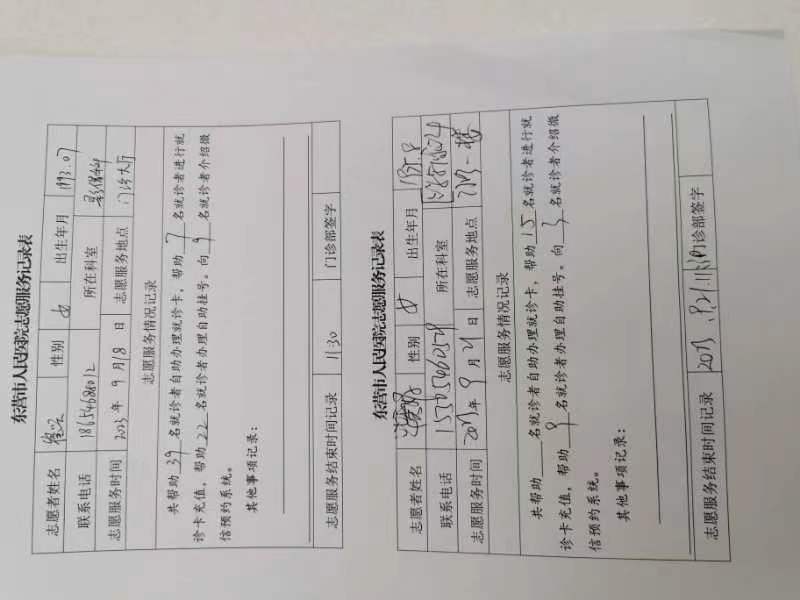 东营市人民医院志愿服务记录表
志愿者姓名 性别 女 出生年月 1993.07
联系电话 18654686012 所在科室 影像科
志愿服务时间 2023年9月18日 志愿服务地点 门诊大厅
志愿服务情况记录
共帮助39名就诊者自助办理就诊卡,帮助7名就诊者进行就
诊卡充值,帮助22名就诊者办理自助挂号。向9名就诊者介绍微
信预约系统。
其他事项记录:
志愿服务结束时间记录 11:30 门诊部签字
东营市人民医院志愿服务记录表
志愿者姓名 性别 女 出生年月
联系电话 所在科室
志愿服务时间 2023年9月21日 志愿服务地点 门诊一楼
志愿服务情况记录
共帮助___名就诊者自助办理就诊卡,帮助15名就诊者进行就
诊卡充值,帮助8名就诊者办理自助挂号。向3名就诊者介绍微
信预约系统。
其他事项记录:
志愿服务结束时间记录 2023.9.21. 门诊部签字